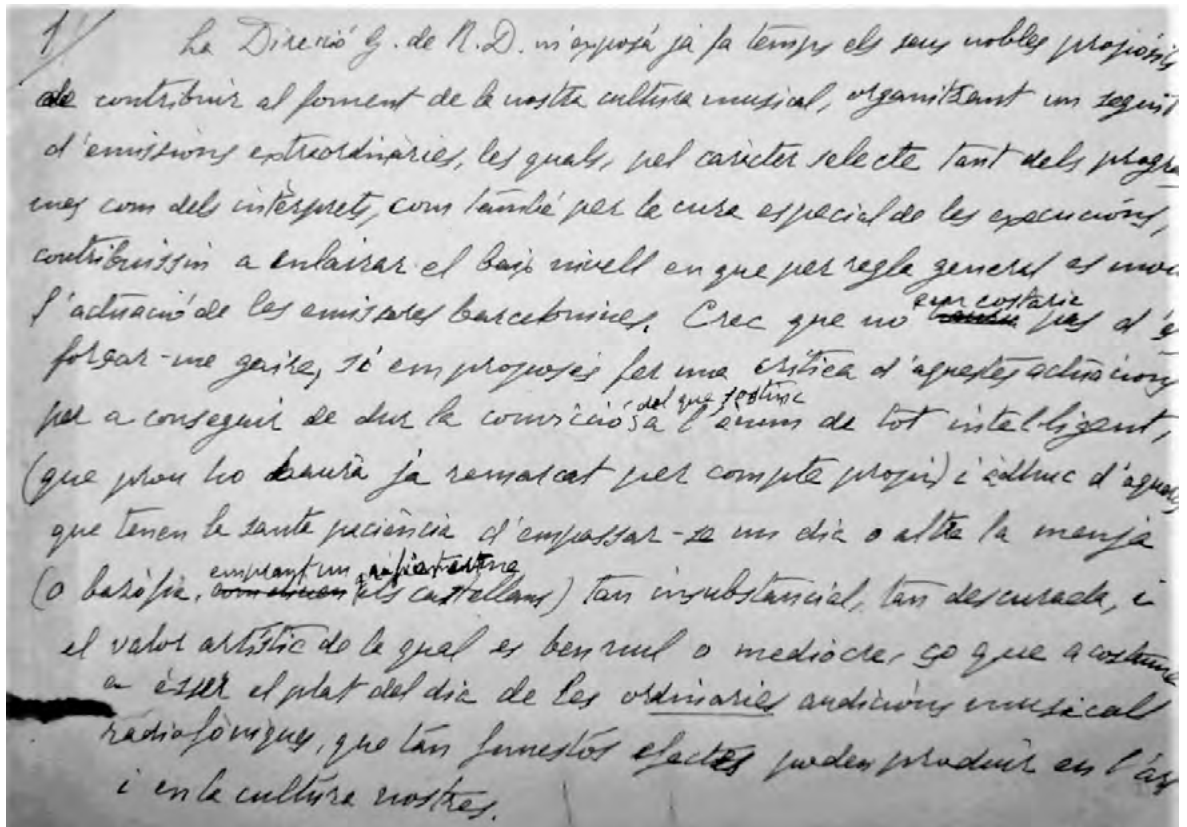 1/ La Direcció G. de R.D. m'exposá já fa temps els seus nobles propòsits
de contribuir al foment de la nostra cultura musical, organitzant un seguit
d'emissions extraordinàries, les quals, pel caràcter selecte tant dels progra
mes com dels intèrprets, com també per la cura especial de les execucións,
contribuissin a enlairar el baix nivell en que per regla general es mou
l'actuació de les emissores barcelonines. Crec que no em costaria pas d'es
forsar-me gaire, si em proposés fer una crítica d'aquestes actuacions
per a conseguir de dur la convicció del que sostinc a l'ànim de tot intel·ligent,
(que prou ho haurà ja remarcat per compte propi) i àdhuc d'aquells
que tenen la santa paciència d'empassar-se un dia o altre la menja
(o bazófia, emprant un castellans) tan insubstancial, tan descurada, i
el valor artístic de la qual es ben nul o mediòcre, ço que acostuma
a ésser el plat del dia de les ordinaries audicións musicals
radiofòniques, que tan funestós efectes poden produir en l'art
i en la cultura nostres.